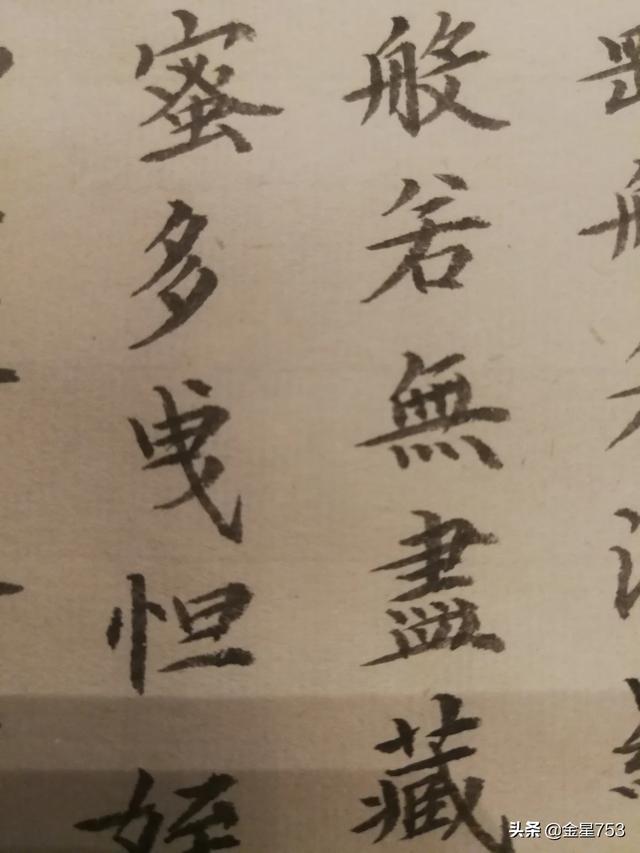 般若無盡藏
蜜多曳怛姪
头条 @金星753